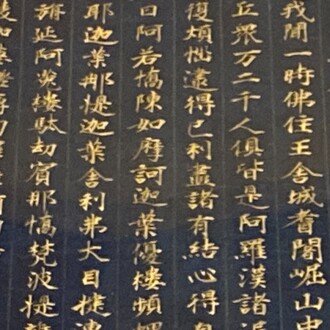 我聞一時佛住王舍城耆闍崛山中
丘眾万二千人俱皆是阿羅漢諸
復煩惱逮得己利盡諸有結心得
曰阿若憍陳如摩訶迦葉優樓頻
耶迦葉那提迦葉舍利弗大目揵連
旃延阿㝹樓馱劫賓那憍梵波提